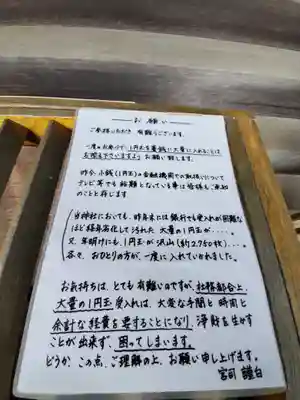 お願い
ご参拝いただき 有難うございます。
一度のお参りで、1円玉を賽銭に大量に入れることは
お控え下さいますよう お願い致します。
昨今、小銭(1円玉)の金融機関での取扱いについて
テレビ等でも話題となっている事は皆様もご承知
のことと存じます
当神社においても、昨年末には銀行でも受入れが困難な
ほど経年劣化して汚れた 大量の1円玉が・・・・。
又、年明けにも、1円玉が沢山(約2,750枚)・・・
各々、おひとりの方が、一度に入れていかれました。
お気持ちは、とても有難いのですが、お務部合上、
大量の1円玉受入れは、大変な手間と時間と
余計な経費を要することになり、浄財を生かす
ことが出来ず、困ってしまいます。
どうか、この点、ご理解の上、お願い申し上げます。
宮司 謹白